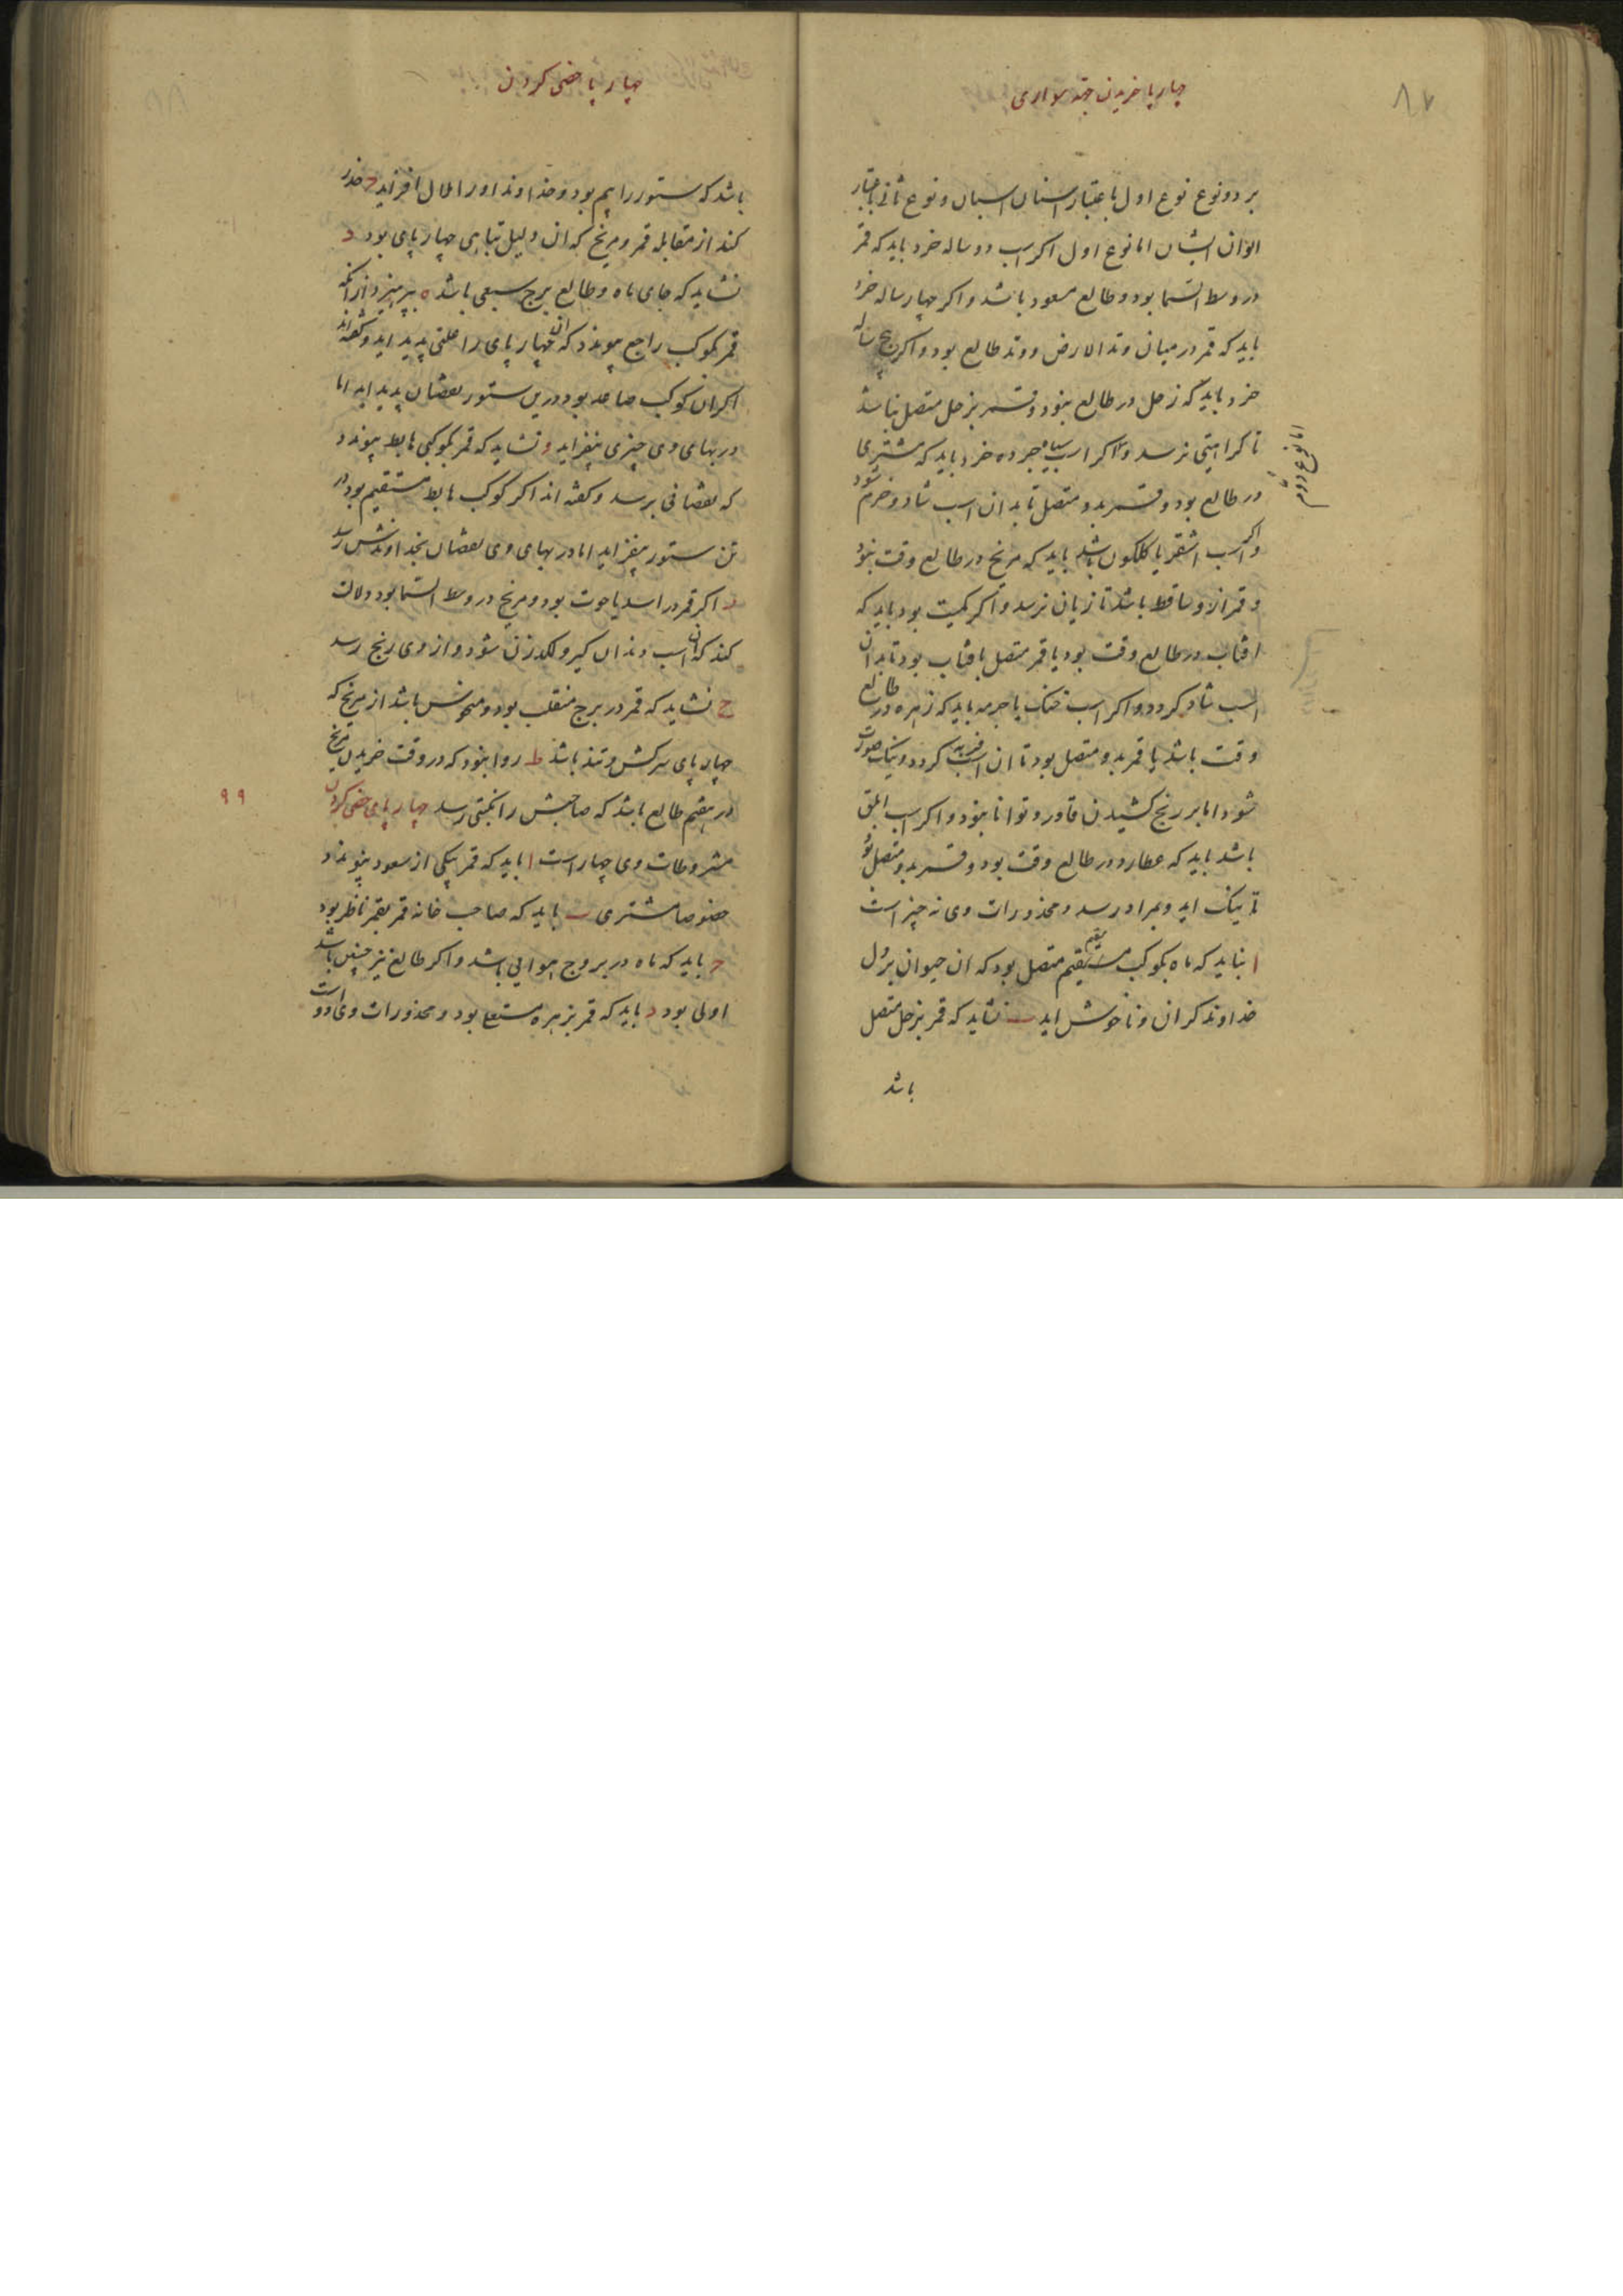 ۸۷
چارپا خریدن جهة سواری
بر دو نوع نوع اول باعتبار اسنان اسبان و نوع ثانی باعتبار
الوان ایشان اما نوع اول اکر اسب دو ساله خرد باید که قمر
در وسط السما بود و طالع مسعود باشد و اکر چهار ساله خرد
باید که قمر در میان وتد الارض و وتد طالع بود و اکر پنج ساله
خرد باید که زحل در طالع نبود و قمر بزحل متصل نباشد
تا کراهیتی نرسد و اکر اسب سیاه جرده خرد باید که مشتری
اما نوع دوم
در طالع بود و قمر بدو متصل تا بدان اسب شاد و خرم شود
و اکر اسب اشقر یا کلکون باشد باید که مریخ در طالع وقت نبود
و قمر ازو ساقط باشد تا زیان نرسد و اکر کمیت بود باید که
افتاب در طالع وقت بود یا قمر متصل بافتاب بود تا بدان
اسب شاد کردد و اکر اسب خنک یا جرمه باید که زهره در طالع
وقت باشد یا قمر بدو متصل بود تا ان اسب فربه کردد و نیک صورت
شود اما بر رنج کشیدن قادر و توانا نبود و اکر اسب ابلق
باشد باید که عطارد در طالع وقت بود و قمر بدو متصل بود
تا نیک اید و بمراد رسد و محذورات وی نه چیز است
ا نباید که ماه بکوکب مستقیم مقیم متصل بود که ان حیوان بر دل
خداوند کران و ناخوش اید ب نشاید که قمر بزحل متصل
باشد
چهار پا خصی کردن
باشد که ستور را بیم بود و خداوند او را ملال افزاید ج حذر
کند از مقابله قمر و مریخ که ان دلیل تباهی چهار پای بود د
نشاید که جای ماه و طالع برج سبعی باشد ه بپرهیزد از انکه
قمر بکوکب راجع پیوندد که ان چهار پای را علتی پدید اید و کفته اند
اکر ان کوکب صاعد بود در تن ستور نقصان پدید اید اما
در بهای وی چیزی بیفزاید و نشاید که قمر بکوکبی هابط پیوندد
که نقصانی برسد و کفته اند اکر کوکب هابط مستقیم بود در
تن ستور بیفزاید اما در بهای وی نقصان بخداوندش رسد
ز اکر قمر در اسد یا حوت بود و مریخ در وسط السما بود دلالت
کند که ان اسب دندان کیر و لکدزن شود و از وی رنج رسد
ح نشاید که قمر در برج منقلب بود و منحوس باشد از مریخ که
چهار پای سرکش و تند باشد ط روا نبود که در وقت خریدن مریخ
در هفتم طالع باشد که صاحبش را نکبتی رسد چهار پای خصی کردن
۹۹
مشروطات وی چهار است ا باید که قمر بیکی از سعود پیوندد
خصوصا مشتری ب باید که صاحب خانه قمر بقمر ناظر بود
ج باید که ماه در بروج هوایی باشد و اکر طالع نیز چنین باشد
اولی بود د باید که قمر بزهره مستعلی بود و محذورات وی دو است